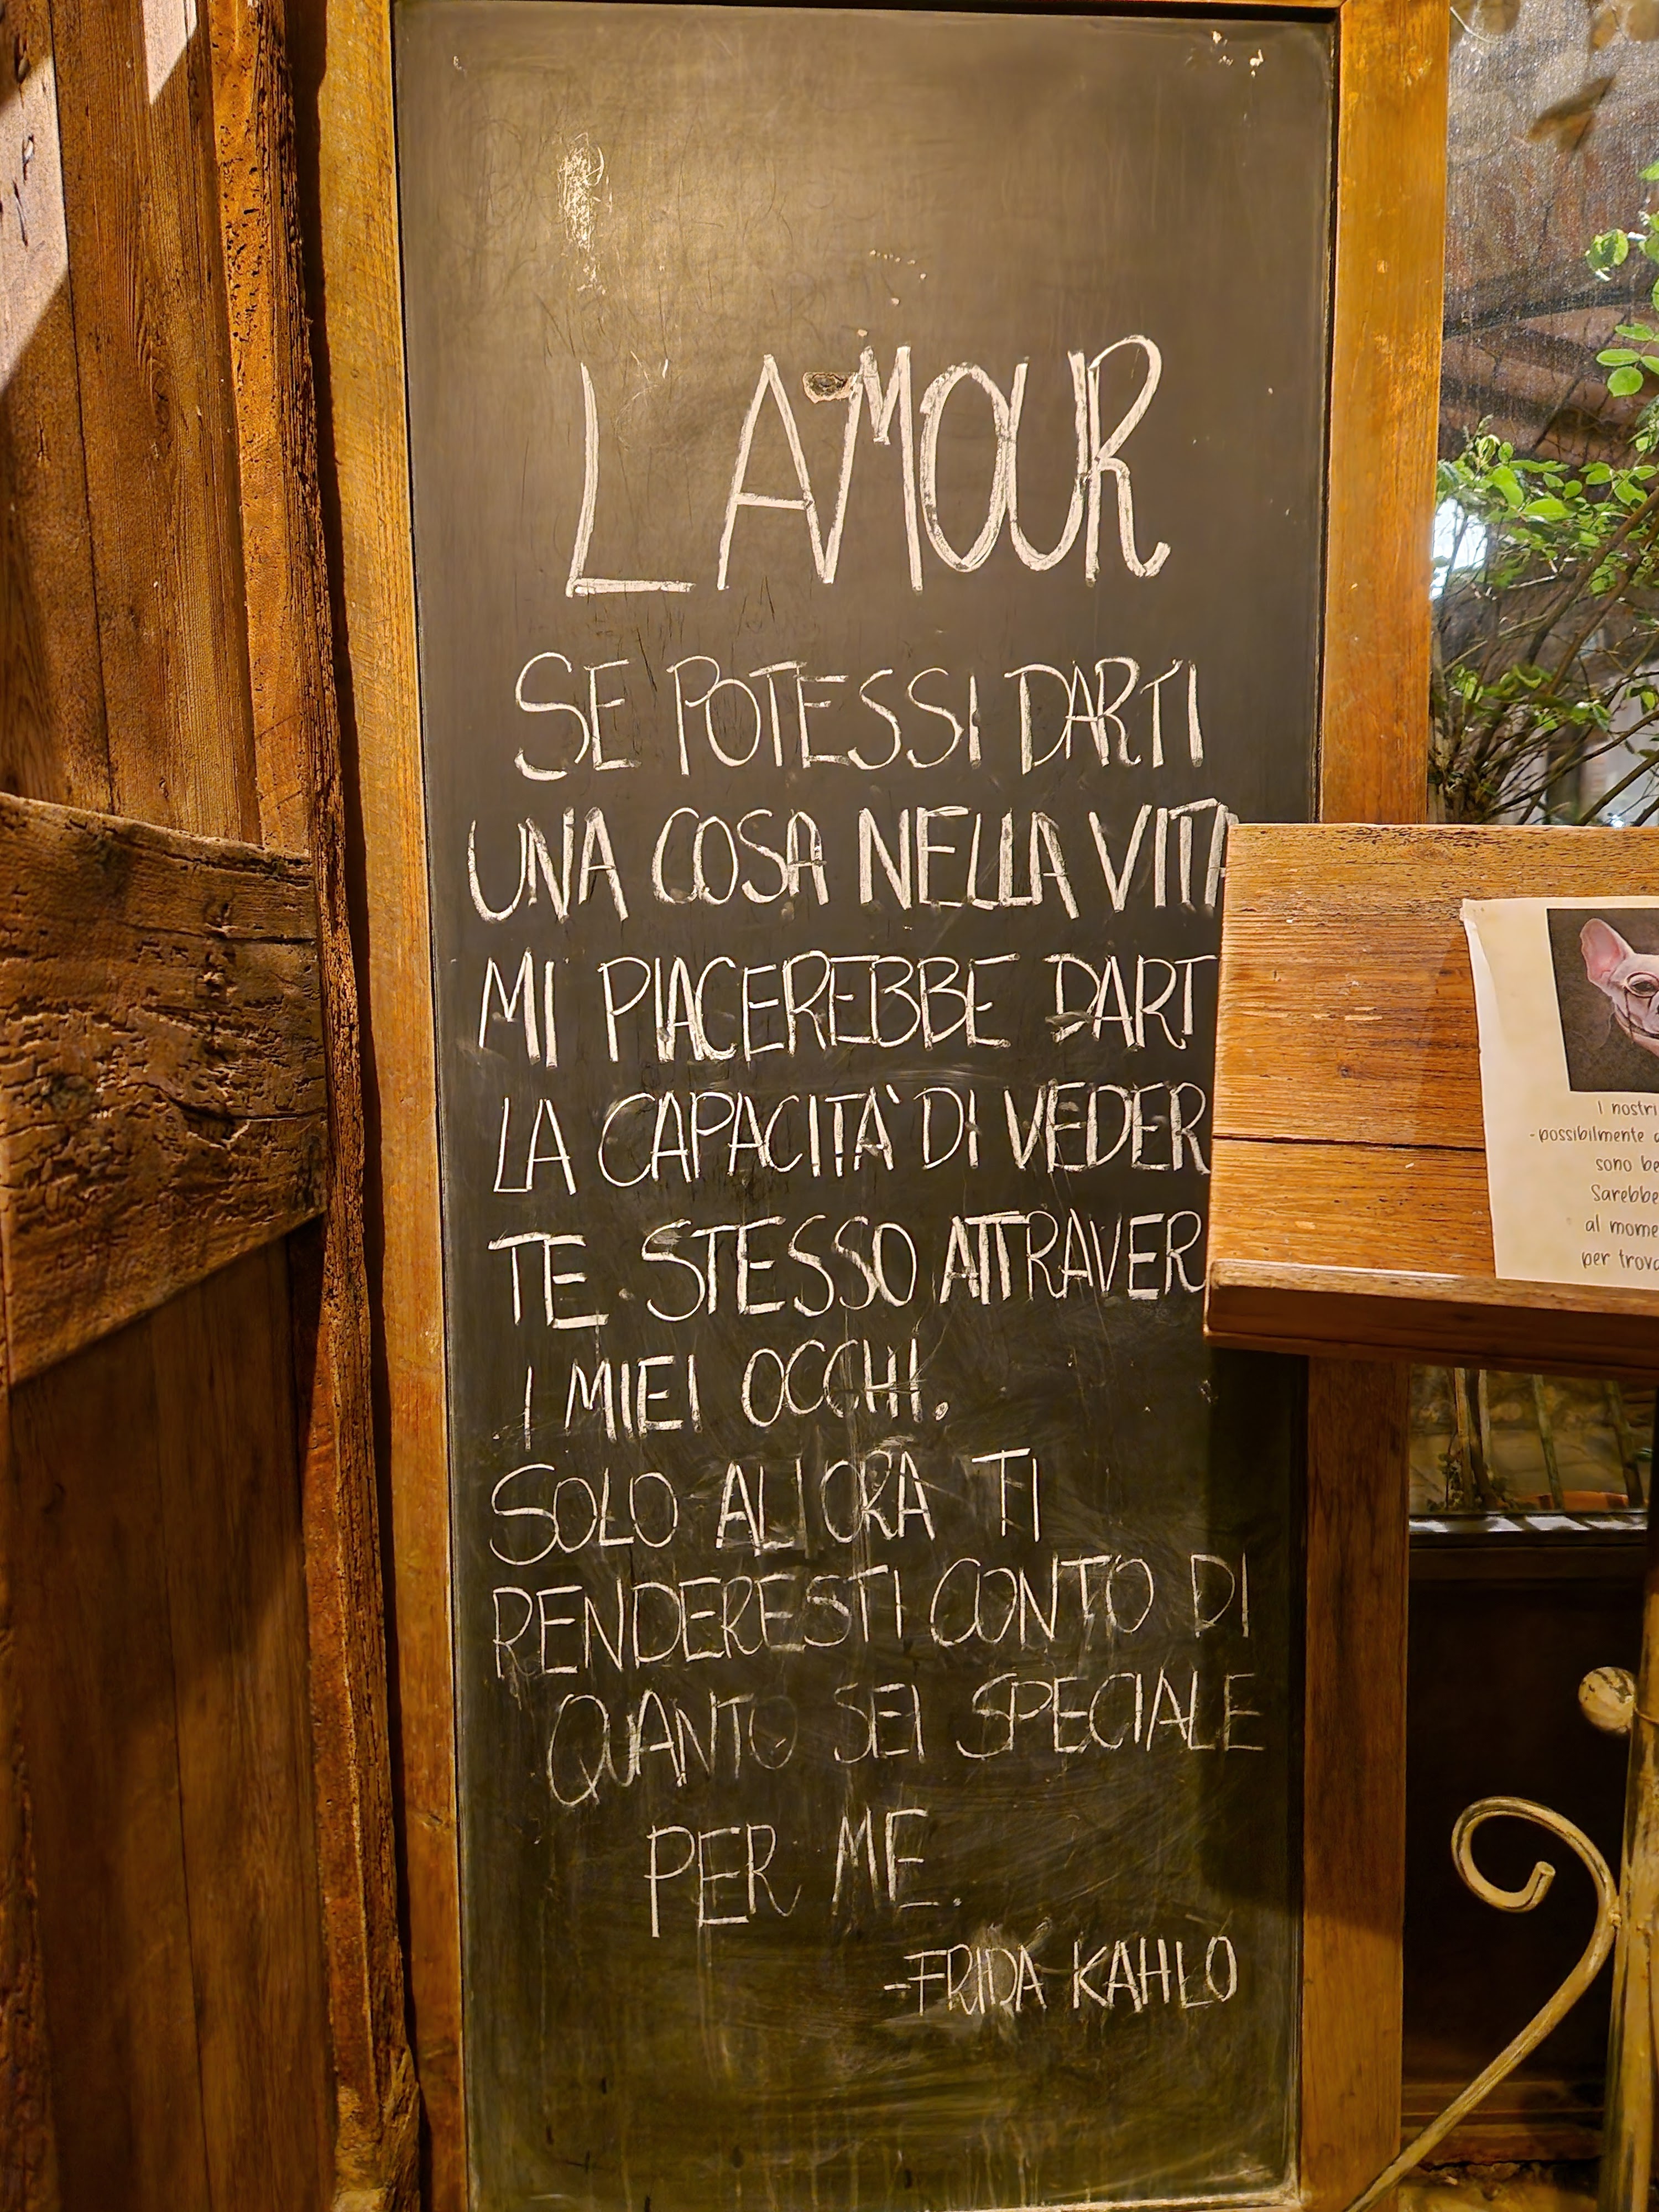 L AMOUR
SE POTESSI DARTI
UNA COSA NELLA VITA
MI PIACEREBBE DART
LA CAPACITÀ DI VEDER
TE STESSO ATTRAVER
I MIEI OCCHI.
SOLO ALLORA TI
RENDERESTI CONTO DI
QUANTO SEI SPECIALE
PER ME.
-FRIDA KAHLO
I nostri
-possibilmente
sono be
Sarebbe
al mome
per trova